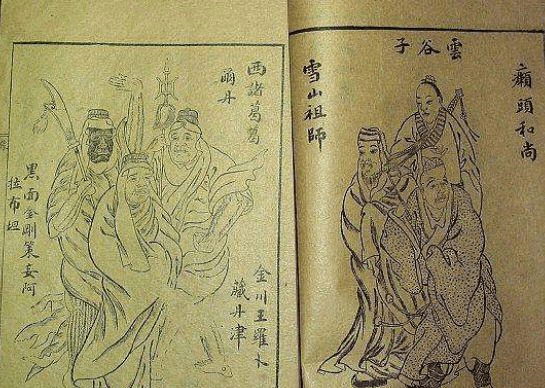 癩頭和尚
雲谷子
雪山祖師
西諸葛葛
爾丹
金川王羅卜
藏丹津
黑面金剛策妄阿
拉布坦